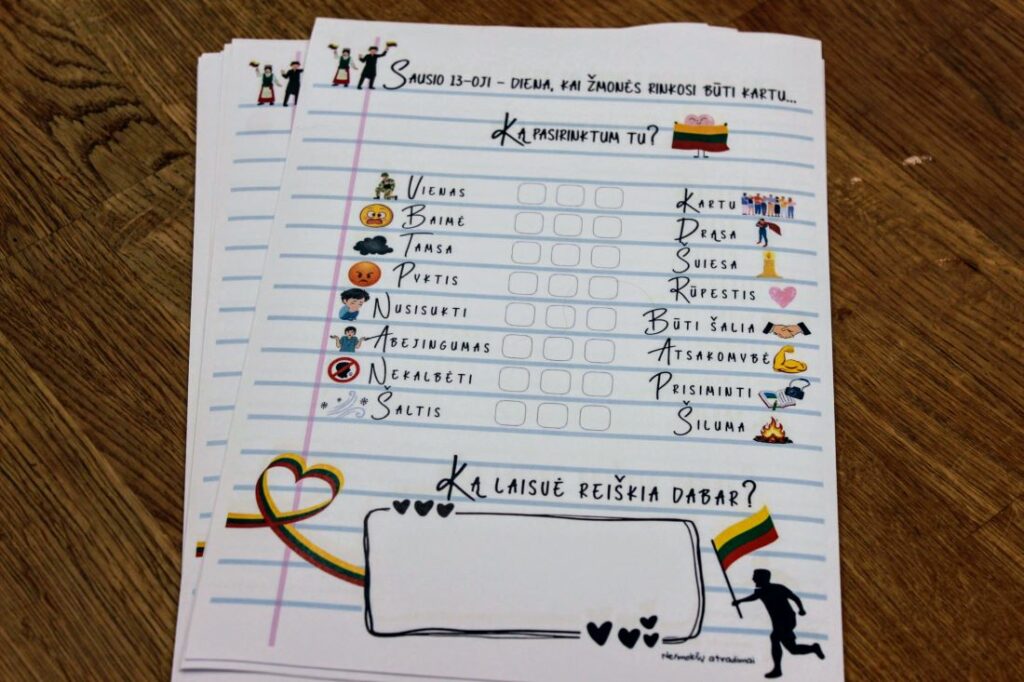 Sausio 13-oji – diena, kai žmonės rinkosi būti kartu...
Ką pasirinktum tu?
Vienas Kartu
Baimė Drąsa
Tamsa Šviesa
Pyktis Rūpestis
Nusisukti Būti šalia
Abejingumas Atsakomybė
Nekalbėti Prisiminti
Šaltis Šiluma
Ką laisvė reiškia dabar?
Neimokšų atradimai